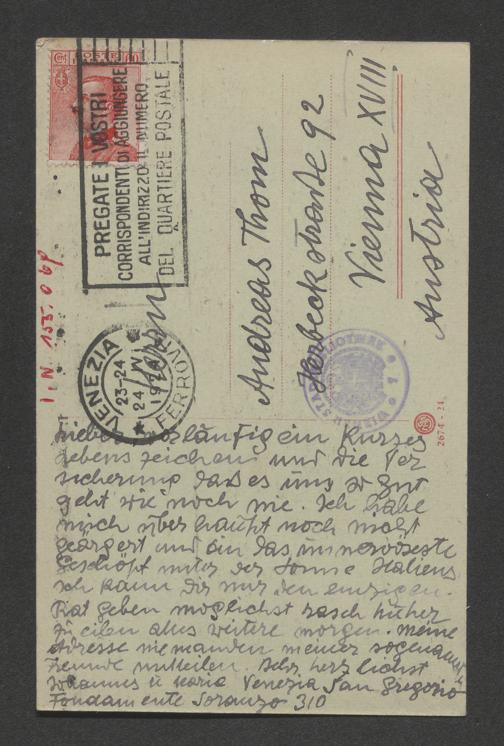 PREGATE I VOSTRI
CORRISPONDENTI DI AGGIUNGERE
ALL'INDIRIZZO IL NUMERO
DEL QUARTIERE POSTALE
VENEZIA
23-24
24
FERROVIA
I.N. 155.069
Herrn
Andreas Thom
Herbeckstraße 92
Vienna XVIII
Austria
2674 - 24
Lieber vorläufig ein kurzes
Lebenszeichen und die Ver
sicherung dass es uns so gut
geht wie noch nie. Ich habe
mich überhaupt noch nicht
geärgert und bin das unnervöseste
Geschöpf unter der Sonne Italiens
Ich kann Dir nur den einzigen
Rat geben möglichst rasch hieher
zu eilen alles weitere morgen. Meine
Adresse niemanden meiner sogenannt
Freunde mitteilen. Sehr herzlichst
Johannes u Maria Venezia San Gregorio
Fondamente Soranzo 310